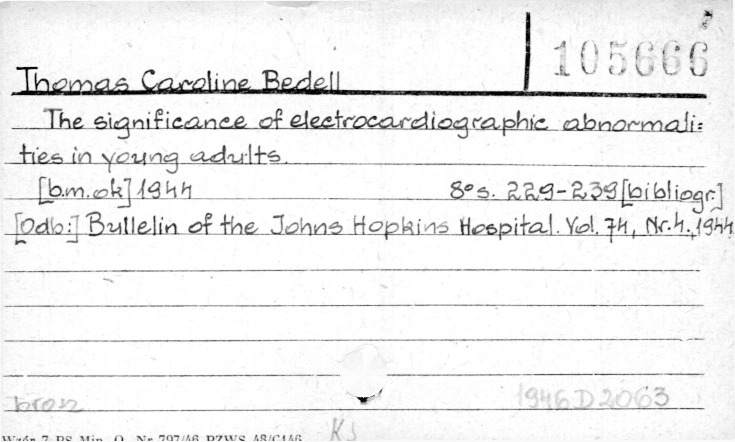 105666
Thomas Caroline Bedell
The significance of electrocardiographic abnormali=
ties in young adults.
[b.m.ok] 1944 8° s. 229-239 [bibliogr.]
[Odb:] Bulletin of the Johns Hopkins Hospital. Vol. 74, Nr. 4., 1944
1946 D 2063
brosz
KJ
Wzór 7 PS Min. O. Nr 797/46 PZWS